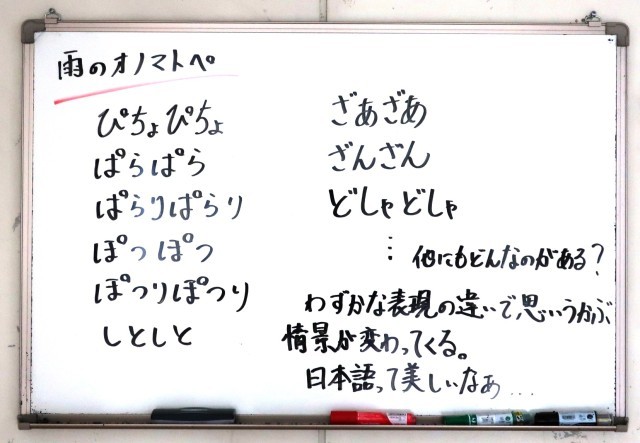 雨のオノマトペ
ぴちょぴちょ
ぱらぱら
ぱらりぱらり
ぽっぽっ
ぽつりぽつり
しとしと
ざあざあ
ざんざん
どしゃどしゃ
⋮ 他にもどんなのがある?
わずかな表現の違いで、思いうかぶ
情景が変わってくる。
日本語って美しいなぁ…